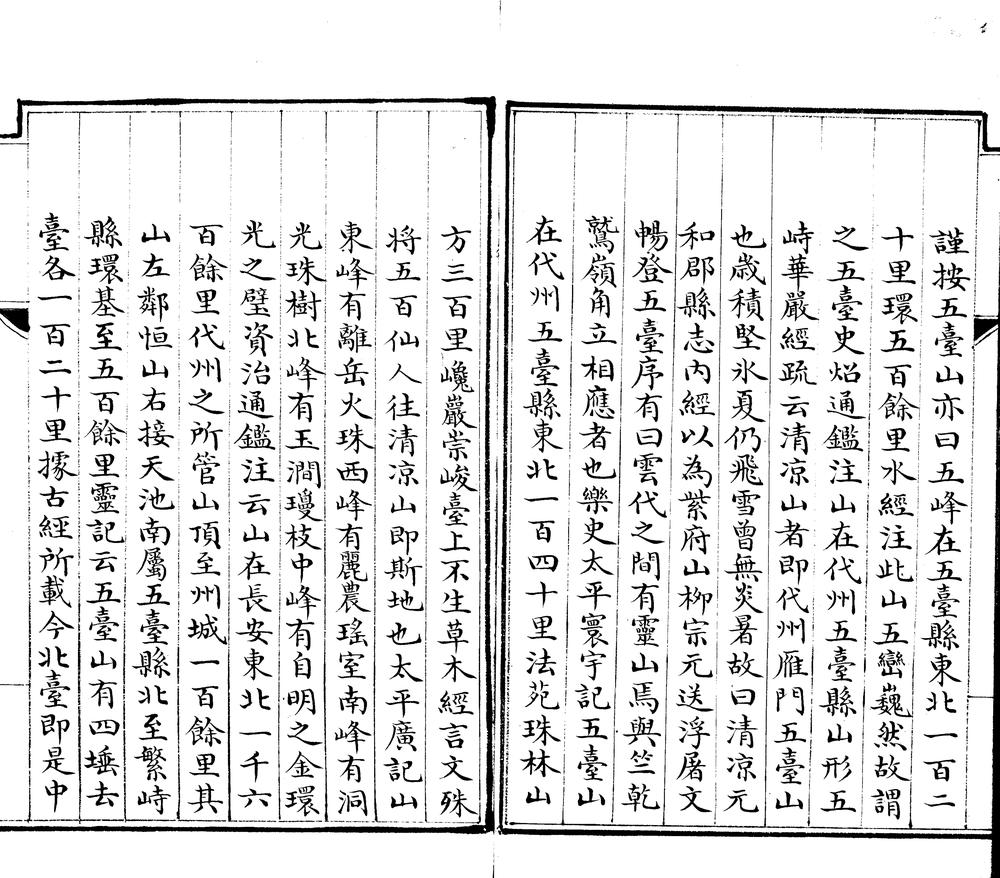 謹按五臺山亦曰五峰在五臺縣東北一百二
十里環五百餘里水經注此山五巒巍然故謂
之五臺史炤通鑑注山在代州五臺縣山形五
峙華嚴經疏云清凉山者即代州雁門五臺山
也歳積堅氷夏仍飛雪曾無炎暑故曰清凉元
和郡縣志内經以為紫府山栁宗元送浮屠文
暢登五臺序有曰雲代之間有靈山焉與竺乾
鷲嶺角立相應者也樂史太平寰宇記五臺山
在代州五臺縣東北一百四十里法苑珠林山
方三百里巉巖崇峻臺上不生草木經言文殊
将五百仙人往清凉山即斯地也太平廣記山
東峰有離岳火珠西峰有麗農瑤室南峰有洞
光珠樹北峰有玉澗瓊枝中峰有自明之金環
光之璧資治通鑑注云山在長安東北一千六
百餘里代州之所管山頂至州城一百餘里其
山左鄰恒山右接天池南屬五臺縣北至繁峙
縣環基至五百餘里靈記云五臺山有四埵去
臺各一百二十里據古經所載今北臺即是中